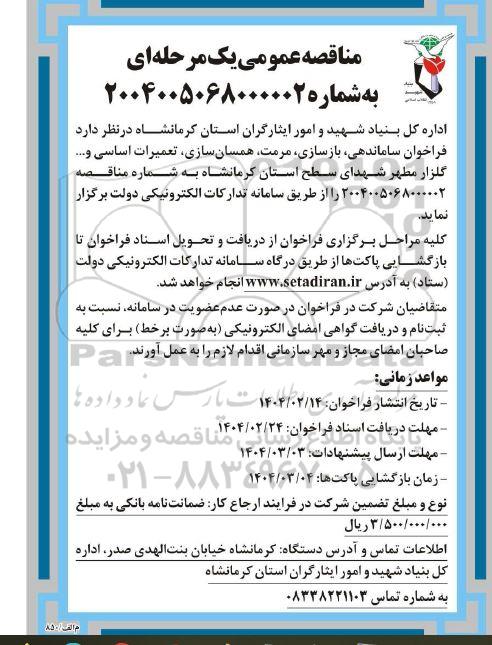 مناقصه عمومی یک مرحله‌ای
به شماره ۲۰۰۴۰۰۵۰۶۸۰۰۰۰۰۲
اداره کل بنیاد شهید و امور ایثارگران استان کرمانشاه درنظر دارد
فراخوان ساماندهی، بازسازی، مرمت، همسان‌سازی، تعمیرات اساسی و...
گلزار مطهر شهدای سطح استان کرمانشاه به شماره مناقصه
۲۰۰۴۰۰۵۰۶۸۰۰۰۰۰۲ را از طریق سامانه تدارکات الکترونیکی دولت برگزار
نماید.
کلیه مراحل برگزاری فراخوان از دریافت و تحویل اسناد فراخوان تا
بازگشایی پاکت‌ها از طریق درگاه سامانه تدارکات الکترونیکی دولت
(ستاد) به آدرس www.setadiran.ir انجام خواهد شد.
متقاضیان شرکت در فراخوان در صورت عدم عضویت در سامانه، نسبت به
ثبت‌نام و دریافت گواهی امضای الکترونیکی (به‌صورت برخط) برای کلیه
صاحبان امضای مجاز و مهر سازمانی اقدام لازم را به عمل آورند.
ParsNamadData
مواعد زمانی:
- تاریخ انتشار فراخوان: ۱۴۰۴/۰۲/۱۴
- مهلت دریافت اسناد فراخوان: ۱۴۰۴/۰۲/۲۴
پایگاه اطلاع رسانی مناقصه و مزایده
- مهلت ارسال پیشنهادات: ۱۴۰۴/۰۳/۰۳
۰۲۱-۸۸۳۴۹۶۷۰-۵
- زمان بازگشایی پاکت‌ها: ۱۴۰۴/۰۳/۰۴
نوع و مبلغ تضمین شرکت در فرایند ارجاع کار: ضمانت‌نامه بانکی به مبلغ
۳/۵۰۰/۰۰۰/۰۰۰ ریال
اطلاعات تماس و آدرس دستگاه: کرمانشاه خیابان بنت‌الهدی صدر، اداره
کل بنیاد شهید و امور ایثارگران استان کرمانشاه
به شماره تماس ۰۸۳۳۸۲۲۱۱۰۳
م الف/۸۵۰